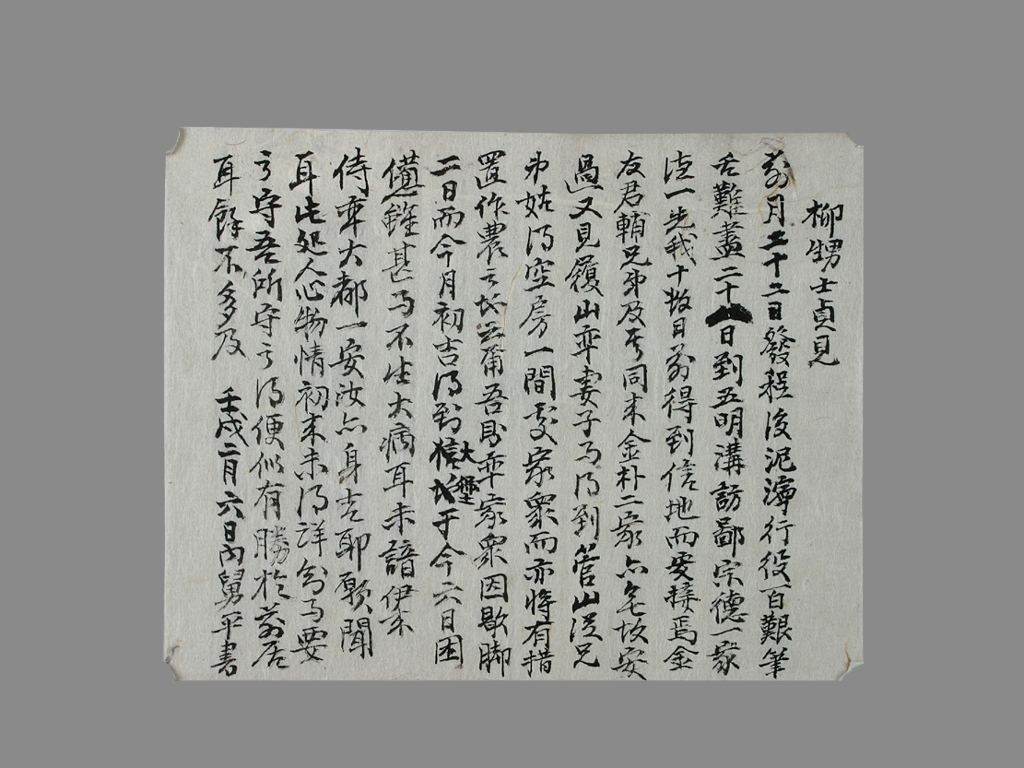 柳甥士貞見
前月二十二日發程後泥濘行役百艱筆
舌難盡二十八日到五明溝訪鄙宗德一家
德一先我十數日前得到信地而安接焉金
友君輔兄弟及弓同來金朴二家亦皆安
過又見履山率妻子而得到管山從兄
弟姑得空房一間處家眾而亦將有措
置作農云然爾吾則率家眾因歇脚
二日而今月初吉得到橫大壑于今六日困
憊雖甚而不生大病耳未諳伊來
侍率大都一安汝亦身吉耶願聞
耳此処人心物情初來未得詳知而要
之守吾所守云得便似有勝於前居
耳餘不多及 壬戌二月六日內舅平書